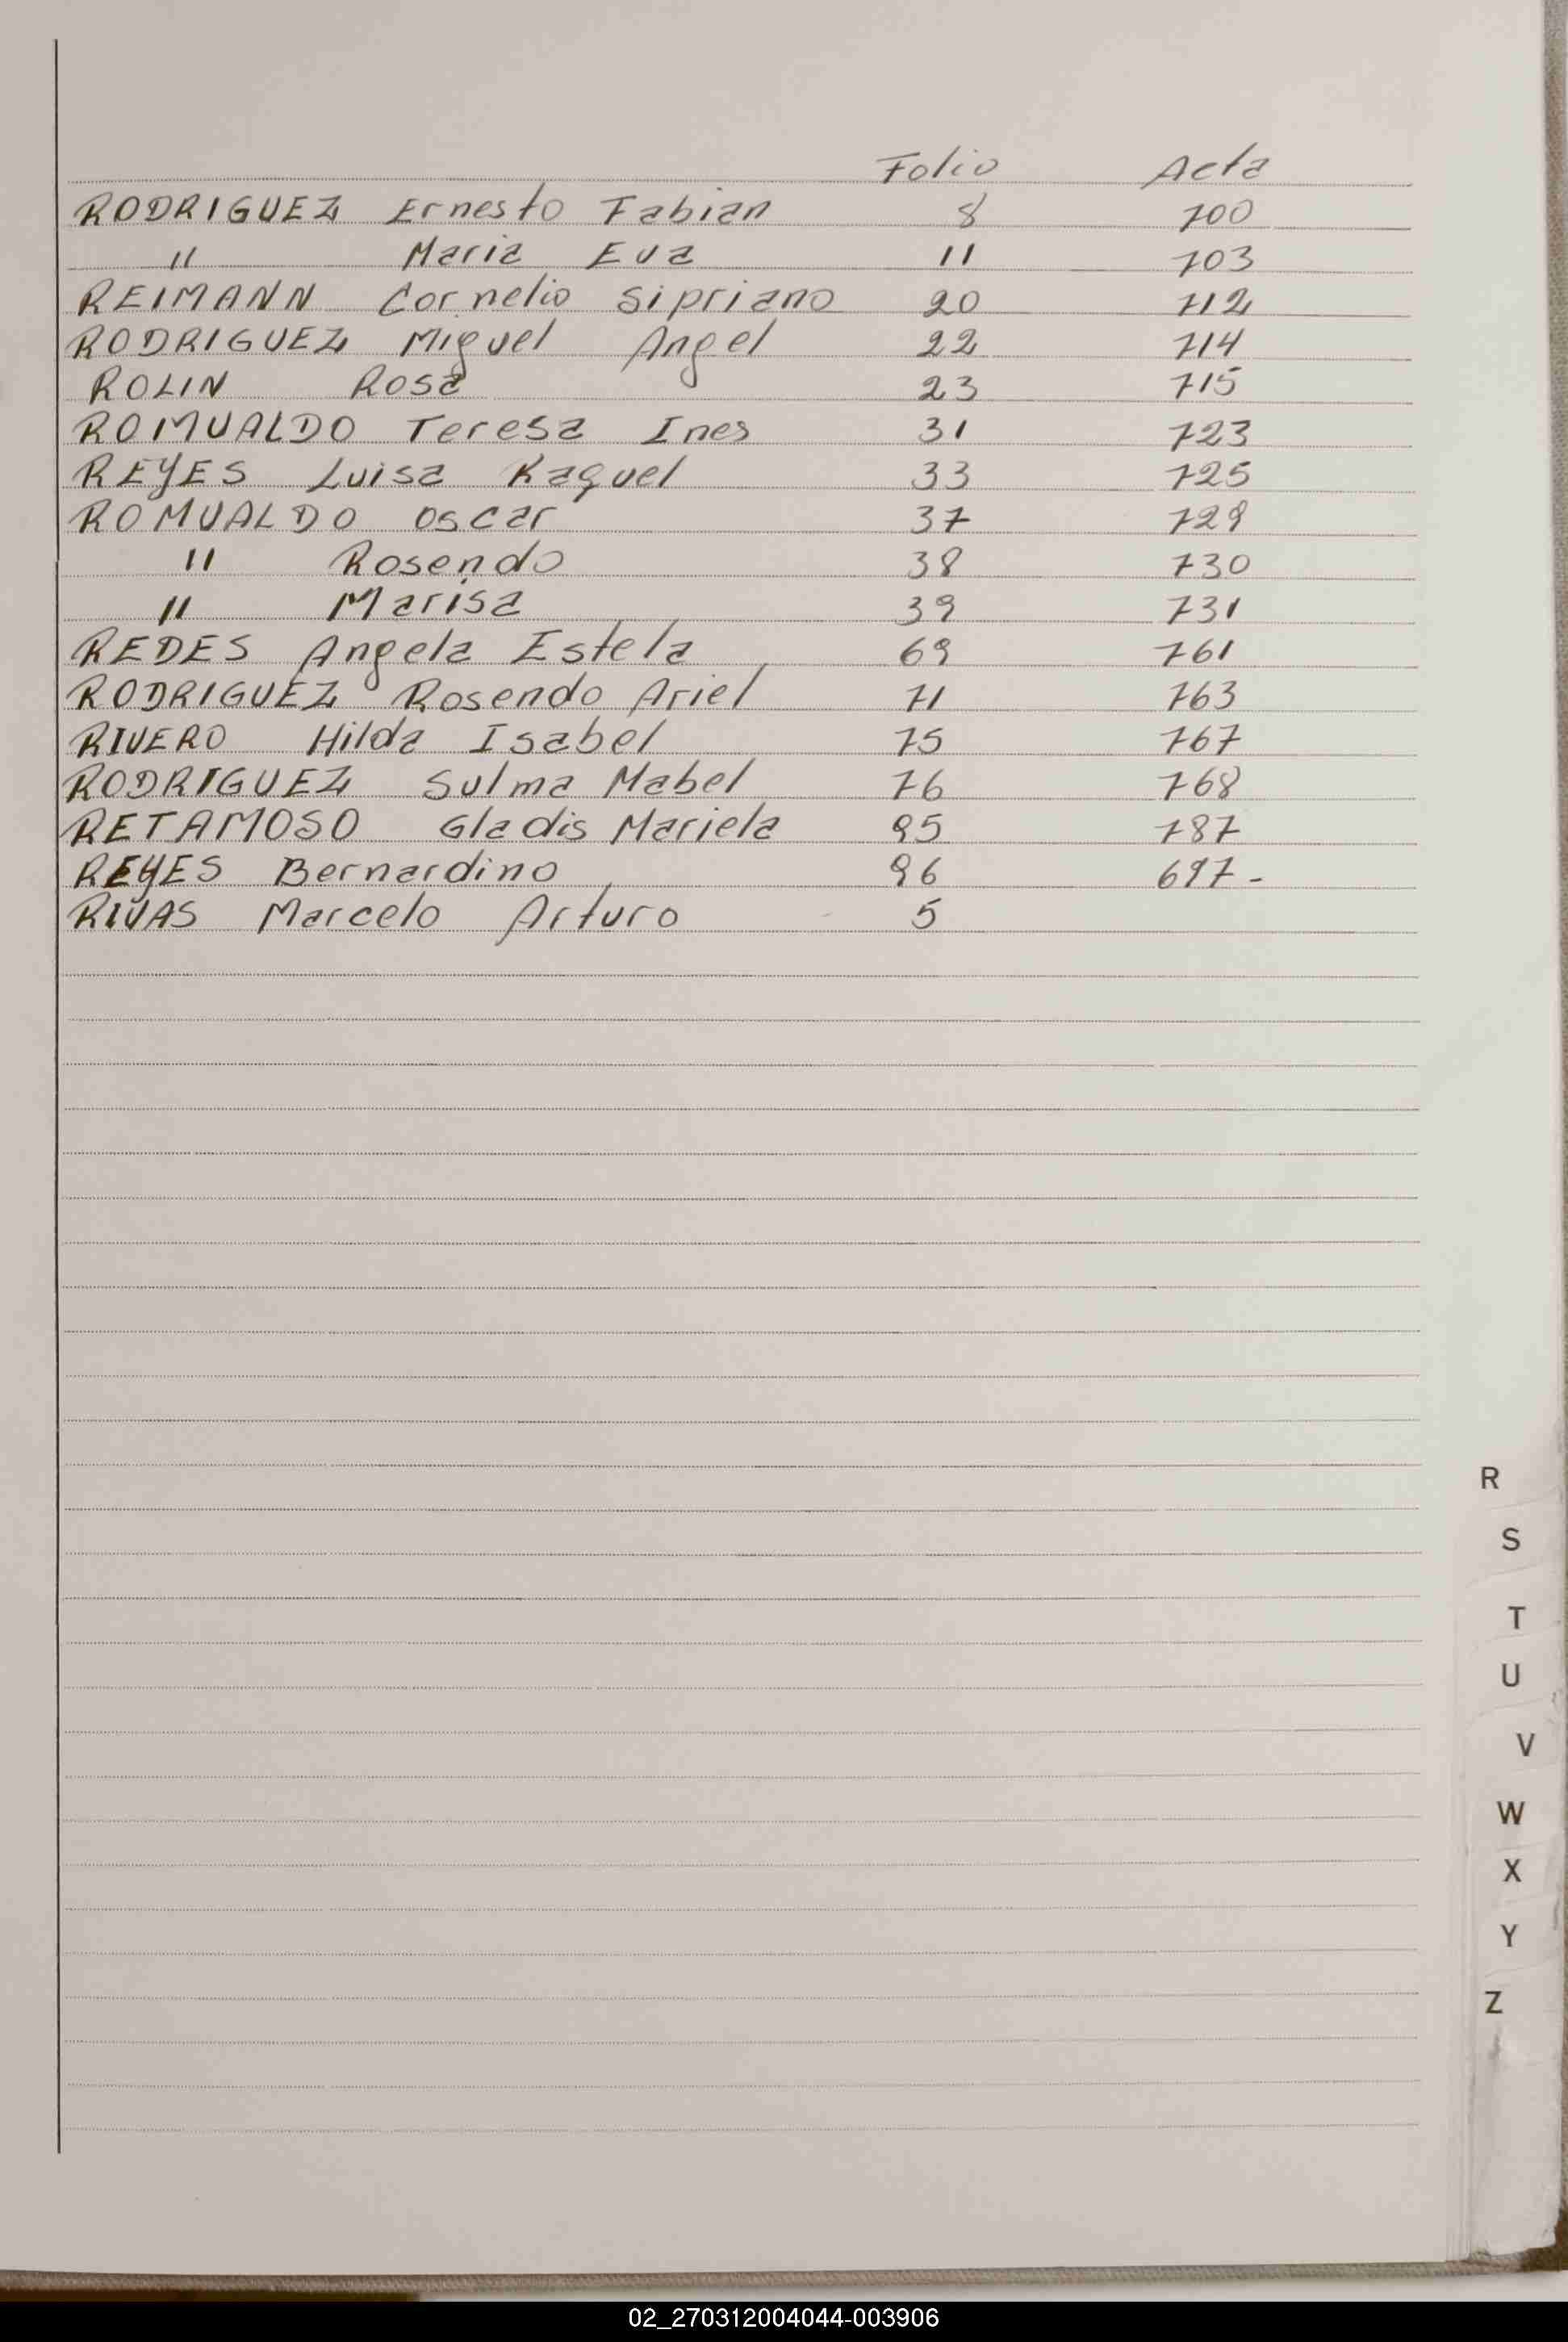 Folio Acta
RODRIGUEZ Ernesto Fabian 8 700
" Maria Eva 11 703
REIMANN Cornelio Sipriano 20 712
RODRIGUEZ Miguel Angel 22 714
ROLIN Rosa 23 715
ROMUALDO Teresa Ines 31 723
REYES Luisa Raquel 33 725
ROMUALDO Oscar 37 729
" Rosendo 38 730
" Marisa 39 731
REDES Angela Estela 69 761
RODRIGUEZ Rosendo Ariel 71 763
RIVERO Hilda Isabel 75 767
RODRIGUEZ Sulma Mabel 76 768
RETAMOSO Gladis Mariela 95 787
REYES Bernardino 96 697-
RIVAS Marcelo Arturo 5
R
S
T
U
V
W
X
Y
Z
02_270312004044-003906